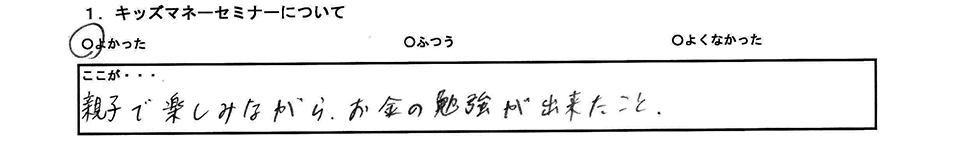 1．キッズマネーセミナーについて
○よかった ○ふつう ○よくなかった
ここが・・・
親子で楽しみながら、お金の勉強が出来たこと.